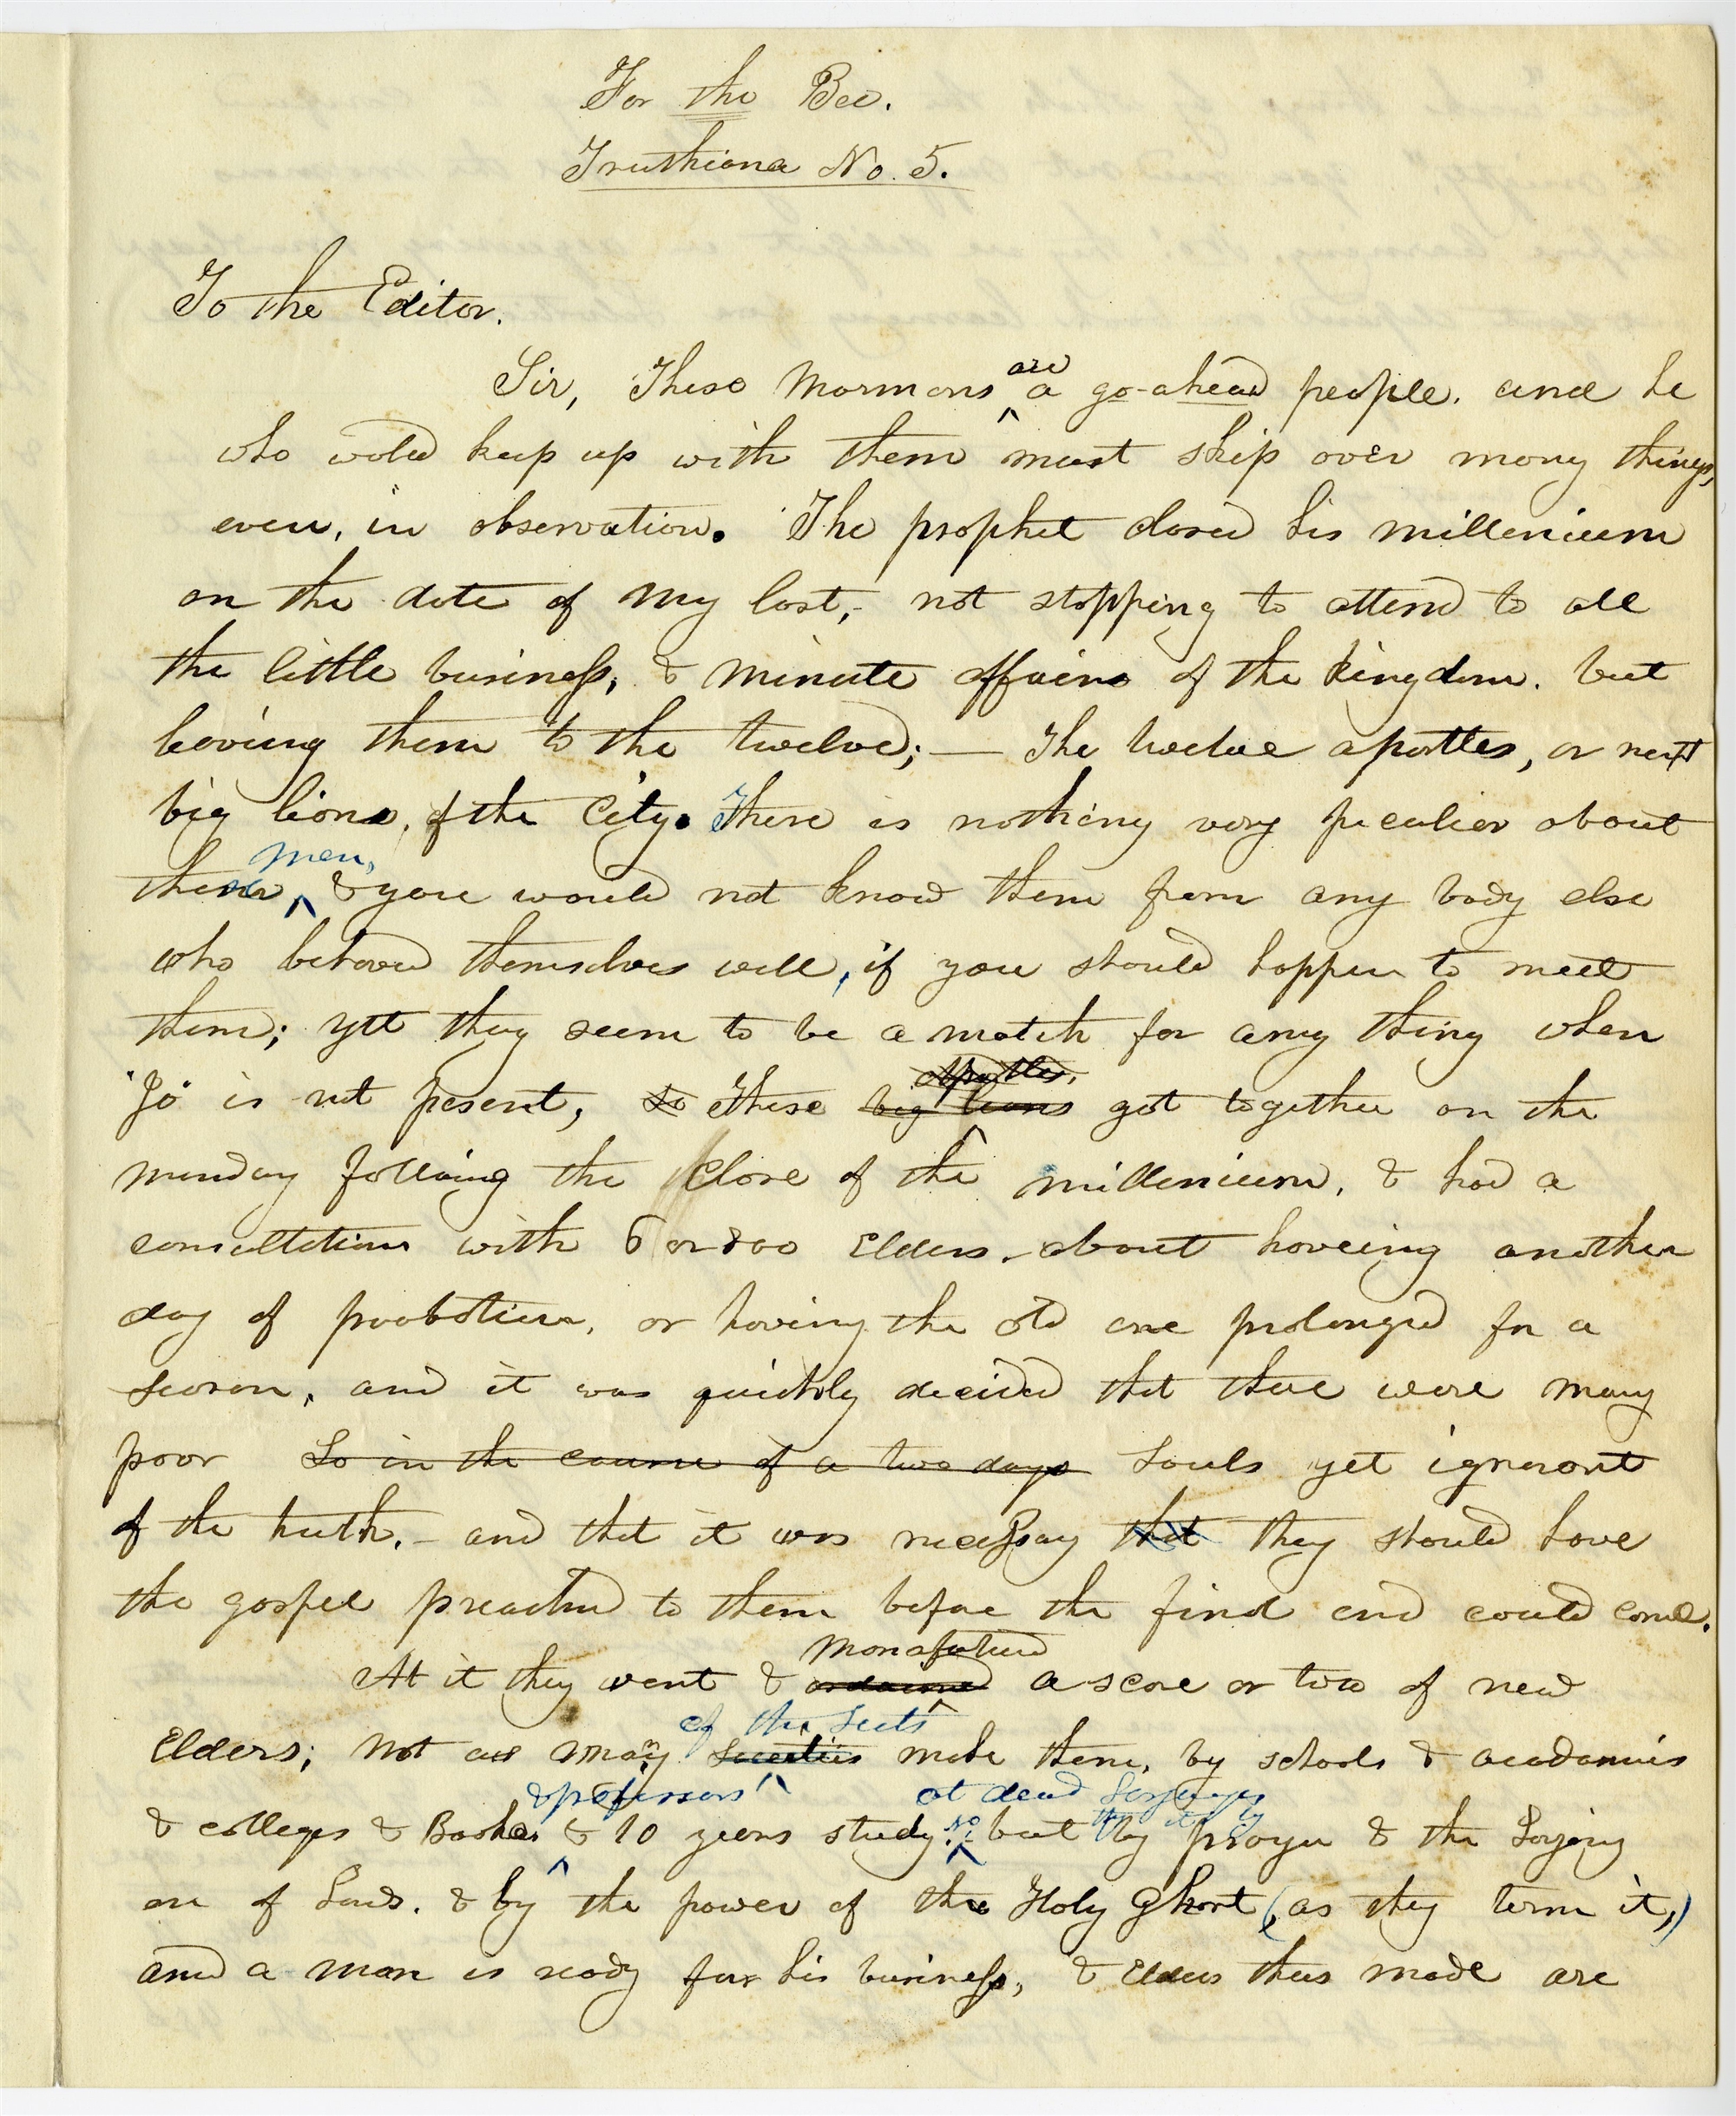 For the Bee.
Truthiana No. 5.
To the Editor.
Sir, These Mormons are a go-ahead people. and he
who would keep up with them must skip over many things,
even, in observation. The prophet closed his millenium
on the date of my last,- not stopping to attend to all
the little business, & minute affairs of the kingdom. but
leaving them to the twelve;— The twelve apostles, or next
big lions, of the City. There is nothing very peculiar about
these men, & you would not know them from any body else
who behaved themselves well, if you should happen to meet
them; yet they seem to be a match for any thing when
"Jo" is not present, so these big lions apostles, got together on the
monday following the close of the millenium, & had a
consultation with 6 or 800 Elders. about haveing another
day of probation, or having the old one prolonged for a
season, and it was quickly decided that there were many
poor So in the course of a two days souls yet ignorant
of the truth.- and that it was necessay that they should have
the gospel preached to them before the final end could come.
At it they went & ordained Monafactured a score or two of new
Elders; not as many societies of the sects make them, by schools & acadamies
& colleges & Books & professors & 10 years study at dead languages but by prayer & the laying
on of hands. & by the power of the Holy Ghost (as they term it,)
and a man is ready for his business, & Elders thus made are